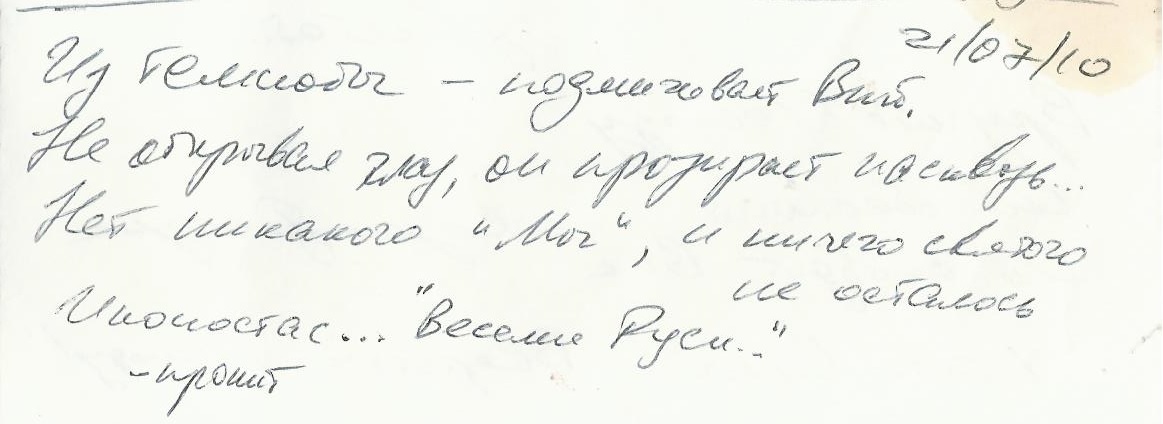 21/07/10
Из темноты – подмигивает Вий.
Не открывая глаз, он прозирает насквозь...
Нет никакого "Мы", и ничего святого
не осталось
Иконостас... "Веселие Руси..."
- пропит